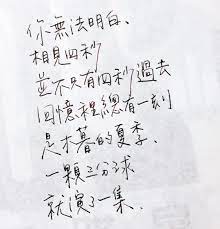 你無法明白、
相見四秒
並不只有四秒過去
回憶裡總有一刻
是才暮的夏季、
一顆三分球
就演了一集.